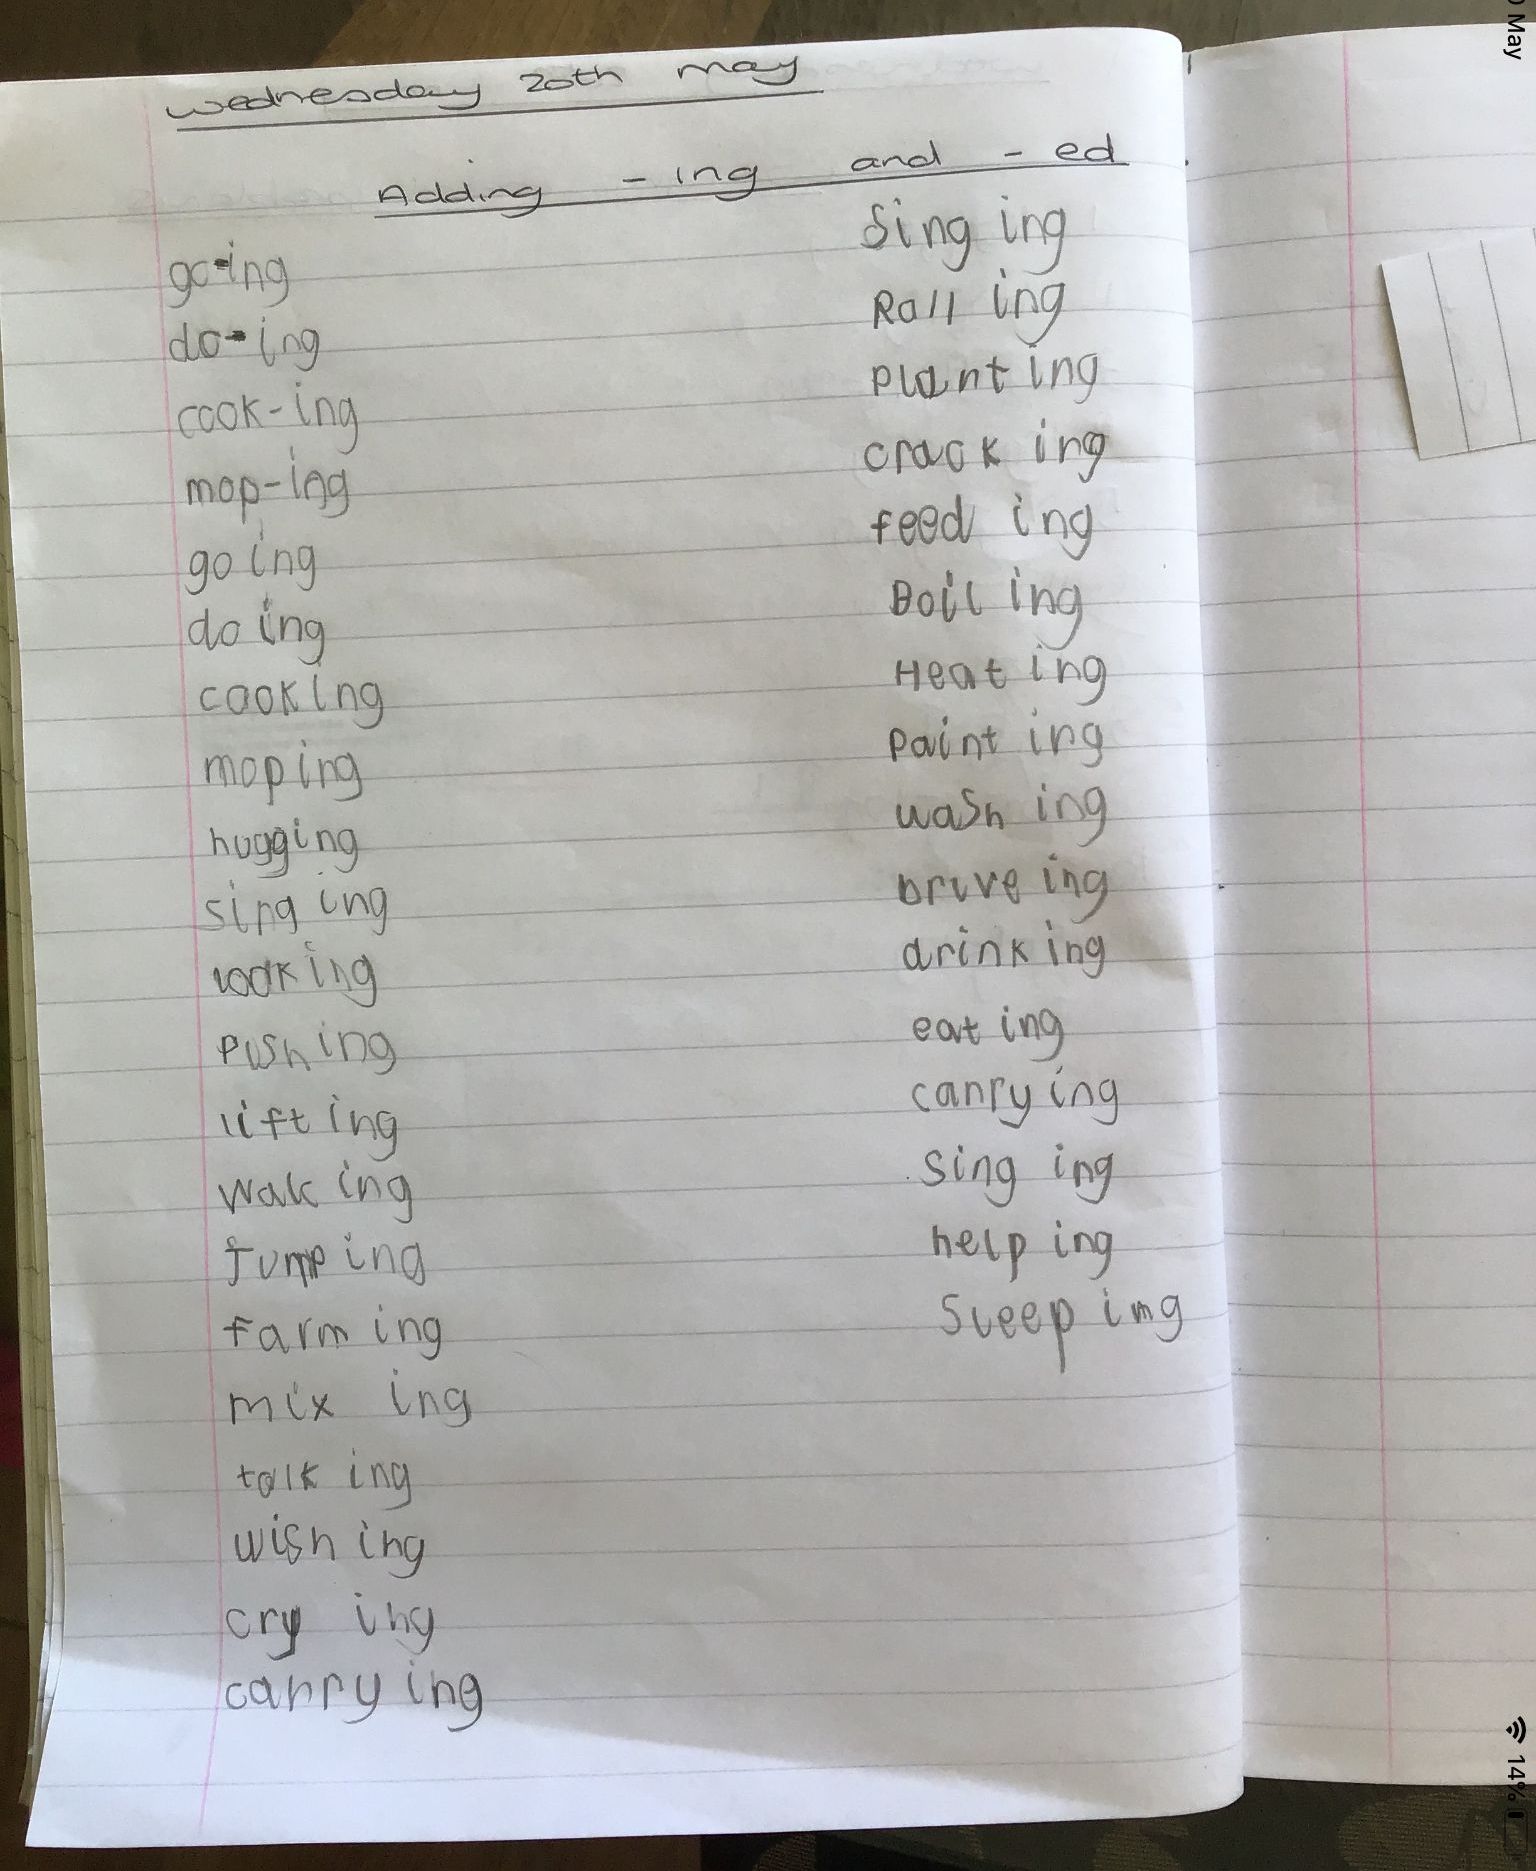 wednesday 20th may
Adding -ing and -ed
go-ing
do-ing
cook-ing
mop-ing
go ing
do ing
cook ing
mop ing
hugging
sing ing
look ing
Push ing
lift ing
walk ing
Jump ing
farm ing
mix ing
talk ing
wish ing
cry ing
carry ing
Sing ing
Roll ing
Plant ing
crack ing
feed ing
Boil ing
Heat ing
Paint ing
wash ing
Drive ing
drink ing
eat ing
carry ing
Sing ing
help ing
Sleep ing
May
14%